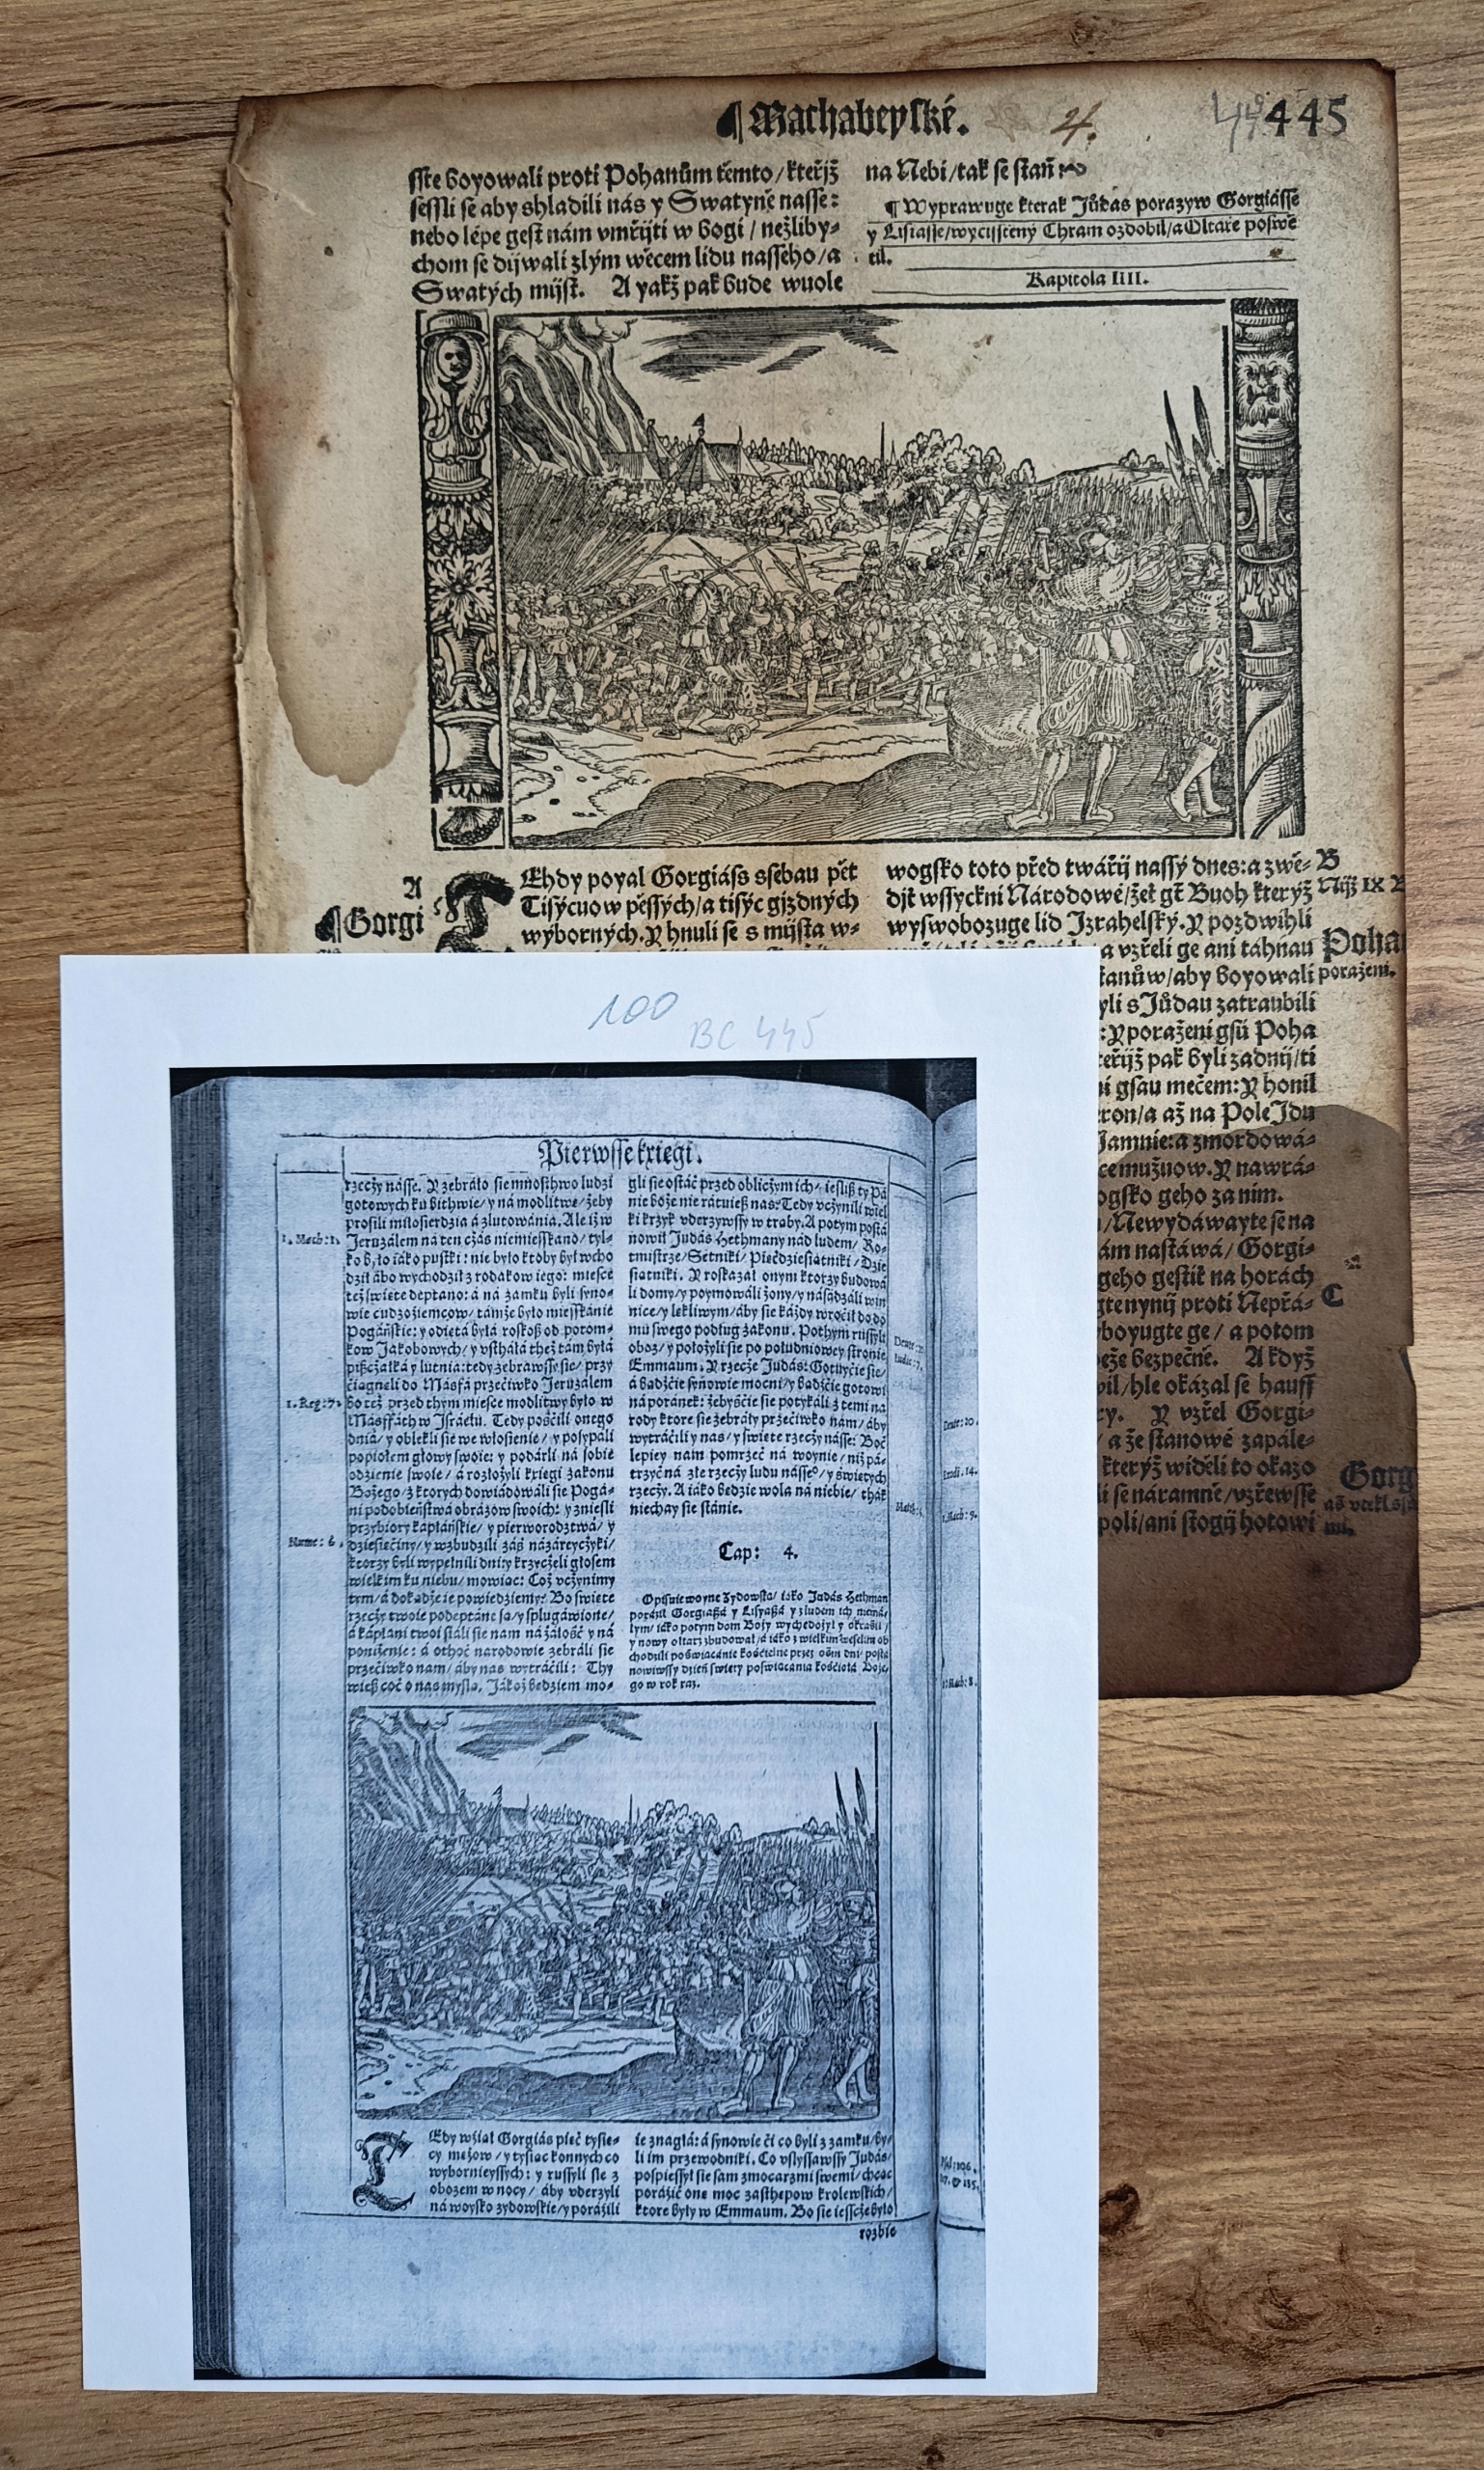 ¶ Machabeyské. 4. 445
sste boyowali proti Pohanům těmto / kteřjž
sessli se aby shladili nás y Swatyně nasse:
nebo lépe gest nám vmřijti w bogi / nežliby-
chom se dijwali zlým wěcem lidu nasseho / a
Swatých mijst. A yakž pak bude wuole
na Nebi / tak se staň
¶ Wyprawuge kterak Júdas porazyw Gorgiásse
y Lisiasse / wycisstěný Chram ozdobil / a Oltaře poswě
til.
Kapitola IIII.
A
¶ Gorgi
TEhdy poyal Gorgiáss ssebau pět
Tisýcuow pěssých / a tisýc gjzdných
wýborných. Y hnuli se s mijsta w-
wogsko toto před twářij nassý dnes: a zwě-
djt wssyckni Národowé / žeť gt Buoh kterýž
wyswobozuge lid Izrahelský. Y pozdwihli
a vzřeli ge ani táhnau
tanůw / aby boyowali
yli s Júdau zatraubili
: Y poraženi gsú Poha
teřijž pak byli zadnij / ti
ni gsau mečem: Y honil
ron / a až na Pole Idu
Jamnie: a zmordowá-
ce mužuow. Y nawrá-
ogsko geho za ním.
/ Newydáwayte se na
ám nastáwá / Gorgi-
geho gestiť na horách
gte nynij proti Nepřá-
boyugte ge / a potom
beže bezpečně. A když
il / hle okázal se hauff
ry. Y vzřel Gorgi-
/ a že stanowé zapále-
kterýž widěli to okazo
li se náramně / vzřewsse
poli / ani stogij hotowi
B
Níjž IX B
Poha
poraženi.
C
Gorg
100
BC 445
Pierwsse kxięgi.
rzeczy násse. Y zebráło sie mnóstwo ludzi
gotowych ku bitwie / y ná modlitwę / żeby
prosili miłosierdzia á zlutowánia. Ale iż w
Jeruzálem ná ten czás nie mieszkano / tyl-
ko było iáko pustki: nie było ktoby był wcho
dził ábo wychodził z rodakow iego: mieśce
też święte deptano: á ná zamku byli syno-
wie cudzoziemcow / támże było mieszkánie
Pogáńskie: y odięta byłá roskosz od potom-
kow Jakobowych / y vstháłá theż tám byłá
piszczałká y lutnia: tedy zebrawssy sie / przy
ciągnęli do Másfá przećiwko Jeruzalem
bo też przed thym mieśce modlitwy było w
Másffách w Izráelu. Tedy pośćili onego
dniá / y oblekli sie we włosienie / y posypáli
popiołem głowy swoie: y podárli ná sobie
odzienie swoie / á rozłożyli kxięgi zakonu
Bożego / z ktorych dowiádowáli sie Pogá-
ni podobieństwá obrázow swoich: y znieśli
przybiory kápłáńskie / y pierworodztwá / y
dziesięćiny / y wzbudzili záś názáreyczyki /
ktorzy byli wypełnili dni: y krzyczeli głosem
wielkim ku niebu / mowiąc: Coż vczynimy
tym / á dokądże ie powiedziemy: Bo święte
rzeczy twoie podeptáne są / y splugáwione /
á kápłani twoi stáli sie nam ná żáłość y ná
poniżenie: á othoć narodowie zebráli sie
przećiwko nam / áby nas wytráćili: Thy
wiesz coć o nas myślą. Jákoż będziem mo-
1. Mach: 1.
1. Reg: 7.
Nume: 6.
gli sie ostáć przed obliczym ich / iesliß ty Pá
nie Boże nie rátuiesz nas: Tedy vczynili wiel
ki krzyk vderzywssy w trąby. A potym postá
nowił Judás Hethmany nád ludem / Ro-
tmistrze / Setniki / Pięćdziesiątniki / Dzie
siątniki. Y roskazał onym ktorzy budowá
li domy / y poymowáli żony / y násádzáli win
nice / y lękliwym / áby sie káżdy wroćił do do
mu swego podług zakonu. Pothym russyli
oboz / y położyli sie po południowey stronie
Emmaum. Y rzecze Judás: Gotuyćie sie /
á bądźćie synowie mocni / y bądźćie gotowi
ná poránek: żebyśćie sie potykáli z temi na
rody ktore sie zebráły przećiwko nam / áby
wytráćili y nas / y święte rzeczy násse: Boć
lepiey nam pomrzeć ná woynie / niż pá-
trzyć ná złe rzeczy ludu násse° / y świętych
rzeczy. A iáko będzie wola ná niebie / thák
niechay sie stánie.
Cap: 4.
Opisuie woynę Żydowską / iáko Judás Hethman
poráził Gorgiaßá y Lisyaßá y z ludem ich niemá-
łym / iáko potym dom Boży wychędożył y okrasił /
y nowy ołtarz zbudował / á iáko z wielkim weselim ob
chodzili poświącánie kośćielne przez ośm dni / postá
nowiwssy dzień święty poświącania kośćiołá Boże-
go w rok raz.
TEdy wżiął Gorgiás pięć tyśię-
cy mężow / y tyśiąc konnych co
wybornieyssych: y russyli sie z
obozem w nocy / áby vderzyli
ná woysko żydowskie / y poráźili
ie znagłá: á synowie ći co byli z zamku / by-
li im przewodniki. Co vsłyssawssy Judás /
pospiessył sie sam z mocarzmi swemi / chcąc
poráźić one moc zasthępow krolewskich /
ktore były w Emmaum. Bo sie iessczebyło
rozbie